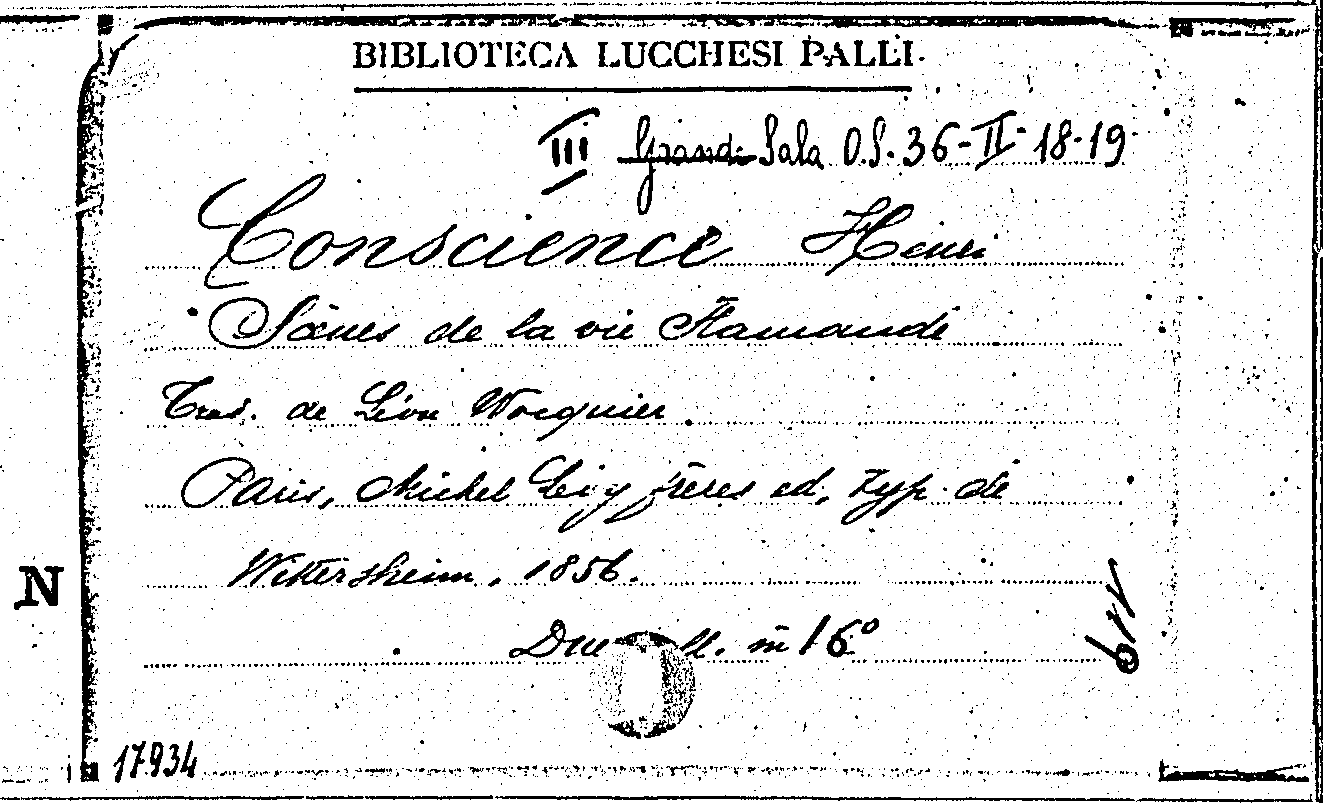 BIBLIOTECA LUCCHESI PALLI.
III Grande Sala O.S. 36-II-18-19
Conscience Henri
Scènes de la vie flamande
Trad. de Léon Wocquier
Paris, Michel Lévy frères ed, typ. de
Wittersheim, 1856.
N
Due ll. in 16º
17934